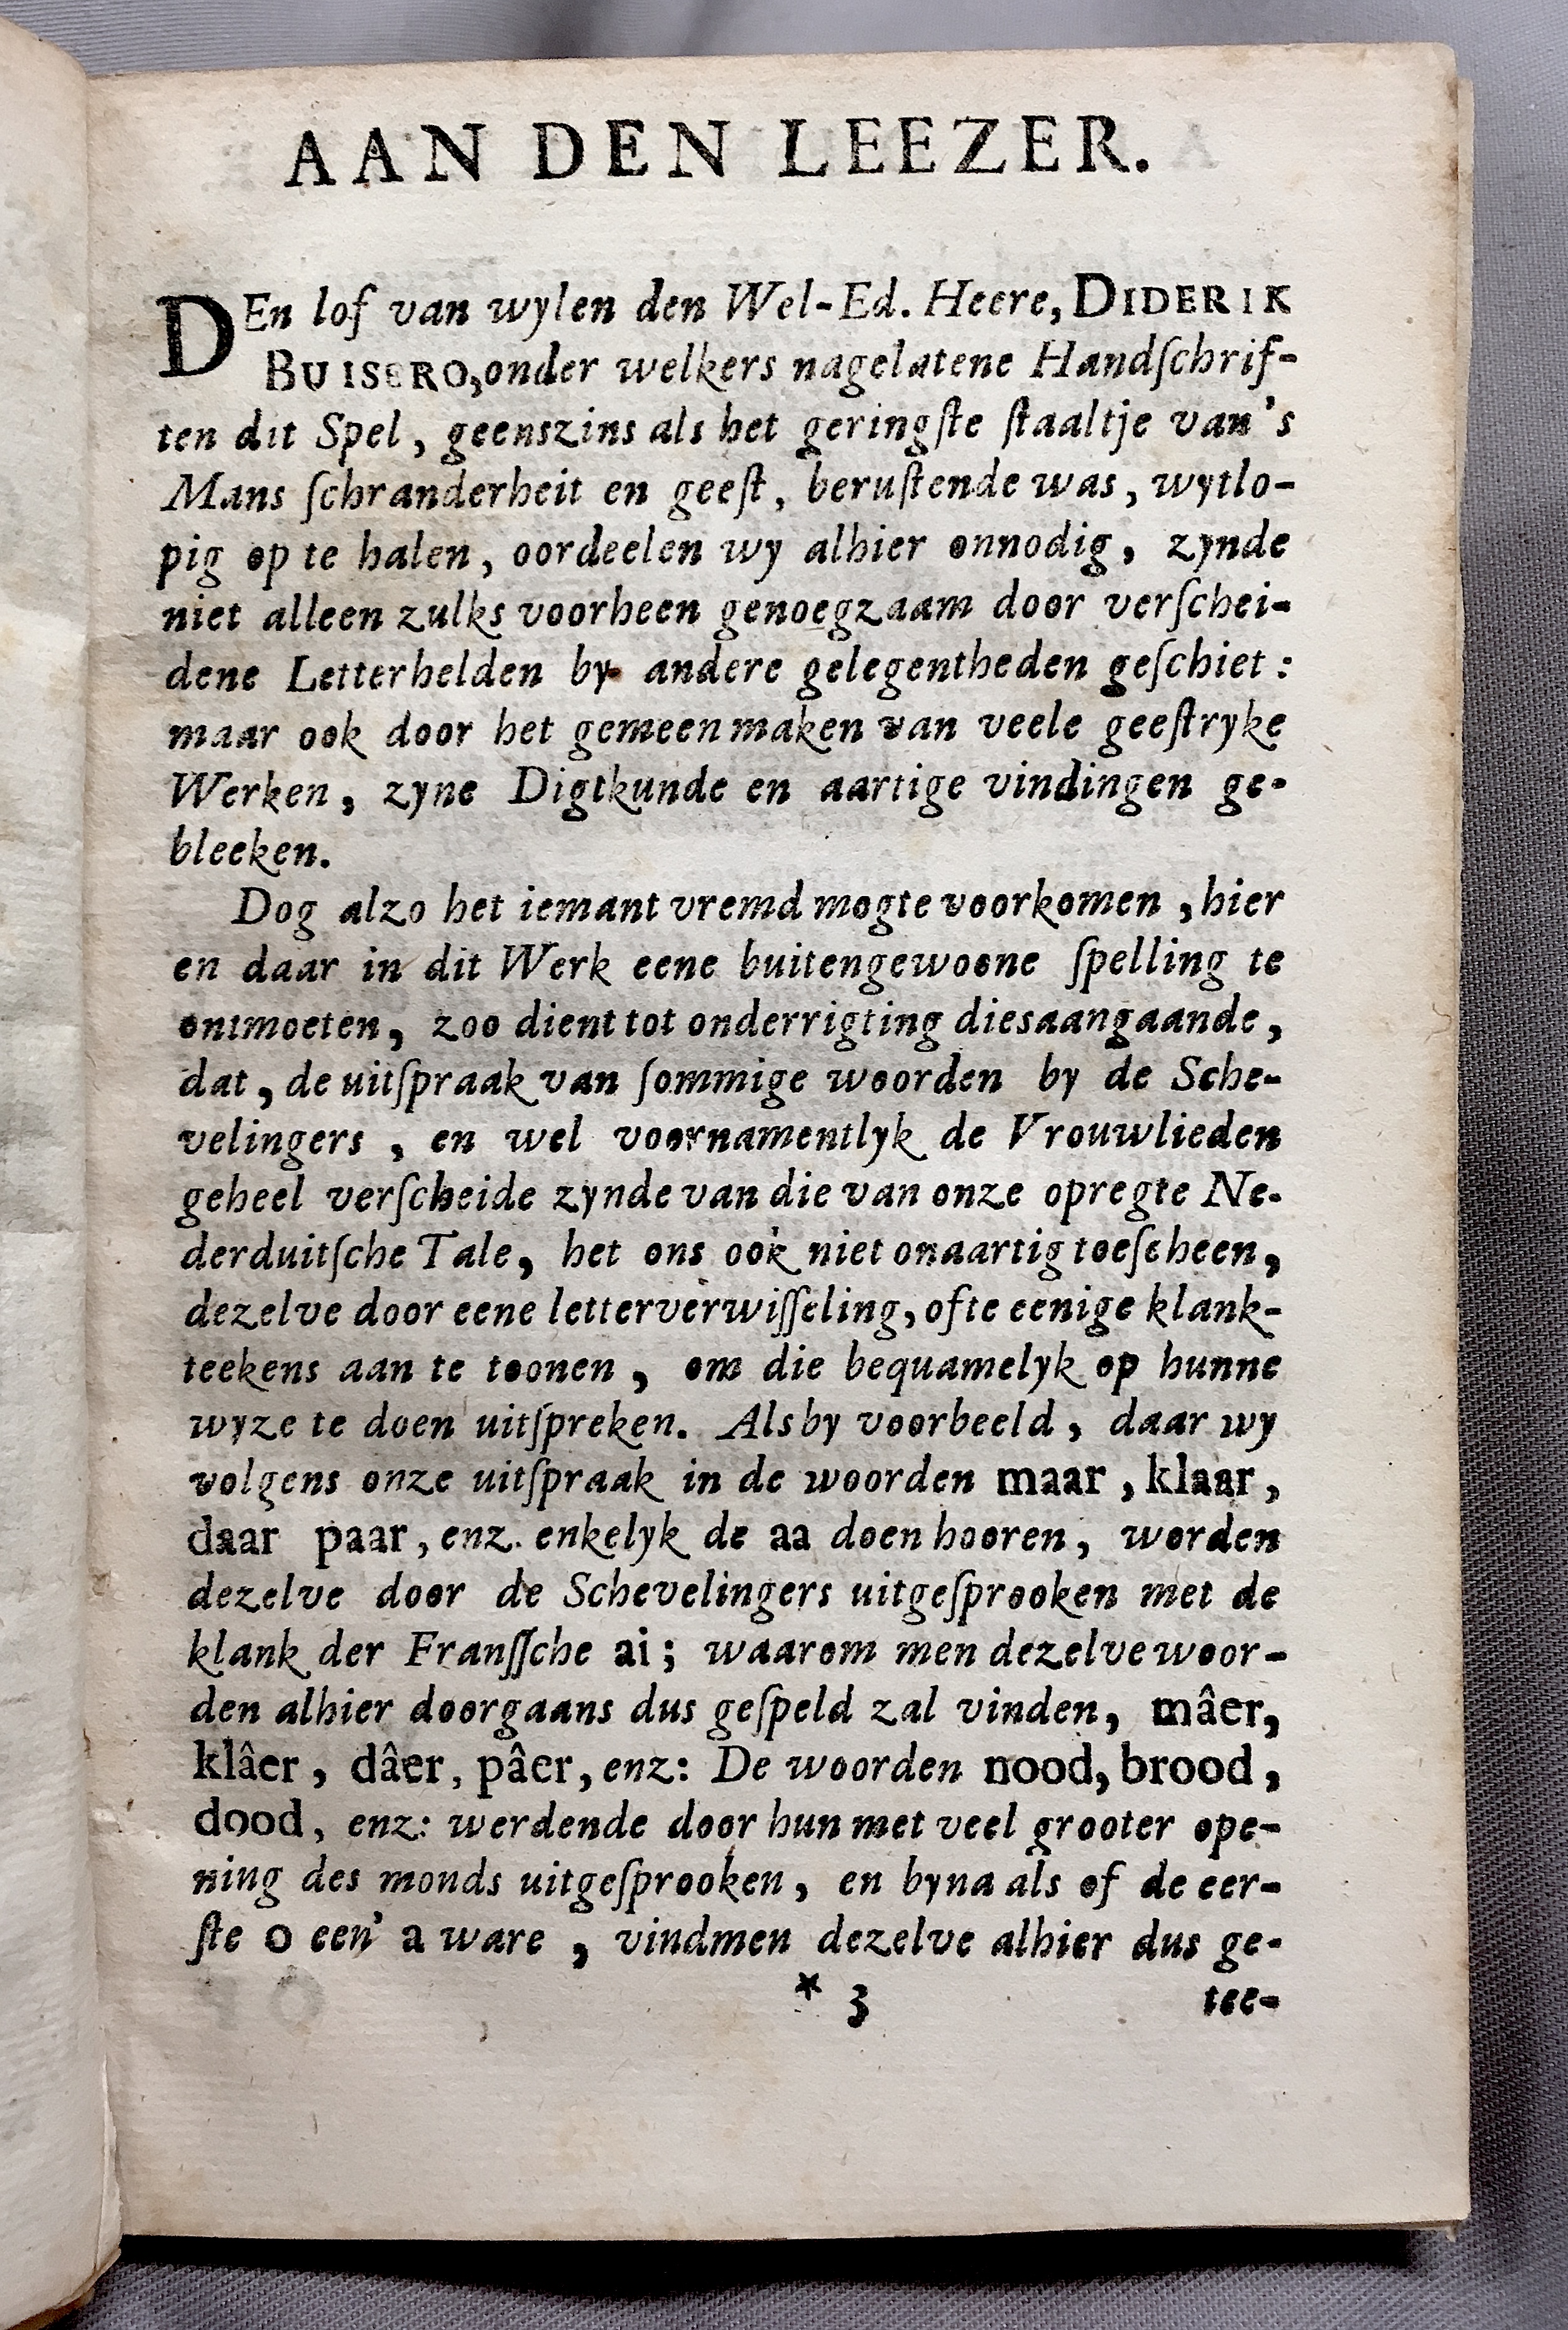 AAN DEN LEEZER.
DEn lof van wylen den Wel-Ed. Heere, DIDERIK
BUISERO, onder welkers nagelatene Handſchrif-
ten dit Spel, geenszins als het geringſte ſtaaltje van's
Mans ſchranderheit en geeſt, beruſtende was, wytlo-
pig op te halen, oordeelen wy alhier onnodig, zynde
niet alleen zulks voorheen genoegzaam door verſchei-
dene Letterhelden by andere gelegentheden geſchiet:
maar ook door het gemeen maken van veele geeſtryke
Werken, zyne Digtkunde en aartige vindingen ge-
bleeken.
Dog alzo het iemant vremd mogte voorkomen, hier
en daar in dit Werk eene buitengewoone ſpelling te
ontmoeten, zoo dient tot onderrigting diesaangaande,
dat, de uitſpraak van ſommige woorden by de Sche-
velingers, en wel voornamentlyk de Vrouwlieden
geheel verſcheide zynde van die van onze opregte Ne-
derduitſche Tale, het ons ook niet onaartig toeſcheen,
dezelve door eene letterverwiſſeling, ofte eenige klank-
teekens aan te toonen, om die bequamelyk op hunne
wyze te doen uitſpreken. Als by voorbeeld, daar wy
volgens onze uitſpraak in de woorden maar, klaar,
daar paar, enz. enkelyk de aa doen hooren, worden
dezelve door de Schevelingers uitgeſprooken met de
klank der Franſſche ai; waarom men dezelve woor-
den alhier doorgaans dus geſpeld zal vinden, mâer,
klâer, dâer, pâer, enz: De woorden nood, brood,
dood, enz: werdende door hun met veel grooter ope-
ning des monds uitgeſprooken, en byna als of de eer-
ſte o een' a ware, vindmen dezelve alhier dus ge-
* 3 tee-